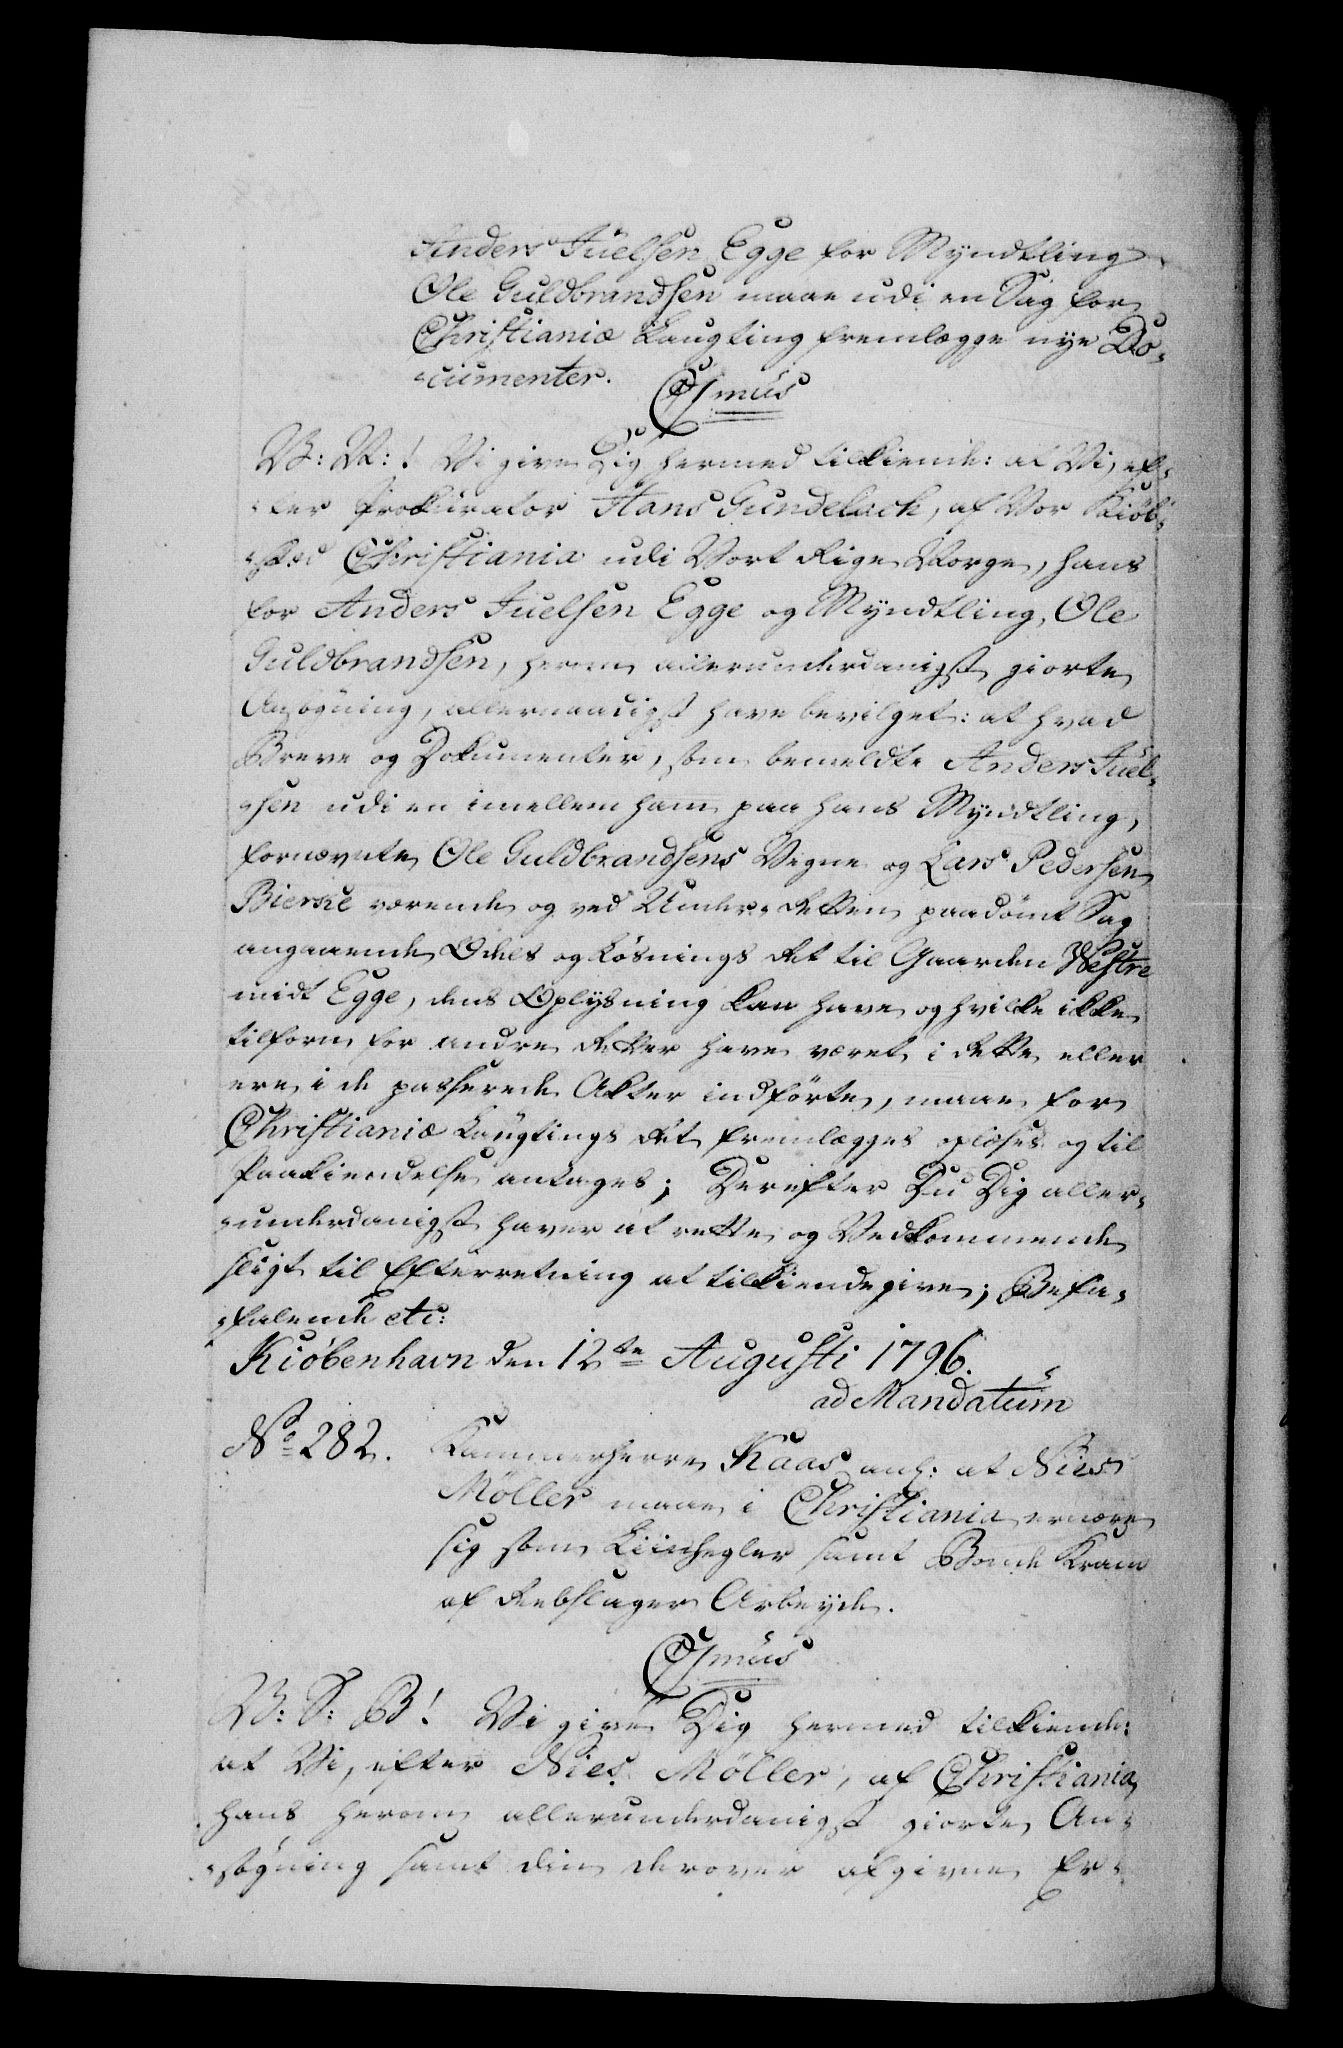 Anders Juelsen Egge for Myndtling
Ole Guldbrandsen maae udi en Sag for
Christianiæ Laugting fremlægge nye Do-
-cumenter.
C7mus
V: V:! Vi give Dig hermed tilkiende: at Vi, ef-
-ter Prokurator Hans Gundelach, af Vor Kiöb-
-sted Christiania udi Vort Rige Norge, hans
for Anders Juelsen Egge og Myndtling, Ole
Guldbrandsen, herom allerunderdanigst giorte
Ansögning, allernaadigst have bevilget: at hvad
Breve og Dokumenter, som bemeldte Anders Juel-
-sen udi en imellem ham paa hans Myndtling,
fornævnte Ole Guldbrandsens Vegne og Lars Pedersen
Bierke værende og ved Under-Retten paadömt Sag
angaaende Odels og Lösnings Ret til Gaarden Westre
midt Egge, dens Oplysning kan have og hvilke ikke
tilforn for andre Retter have været i Rette eller
ere i de passerede Akter indförte, maae for
Christianiæ Laugtings Ret fremlægges oplæses og til
Paakiendelse antages; Derefter Du Dig aller-
-underdanigst haver at rette og Vedkommende
sligt til Efterretning at tilkiendegive; Befa-
-falende etc:
Kiöbenhavn den 12te Augusti 1796.
ad Mandatum
No 282. Kammerherre Kaas anh: at Niels
Möller maae i Christiania ernære
sig som Liinhegler samt Bonde Kram
af Rebslager Arbeyde.
C7mus
V: S: B! Vi give Dig hermed tilkiende:
at Vi, efter Niels Möller, af Christiania,
hans herom allerunderdanigst giorte An-
-sögning samt din derover afgivne Er-